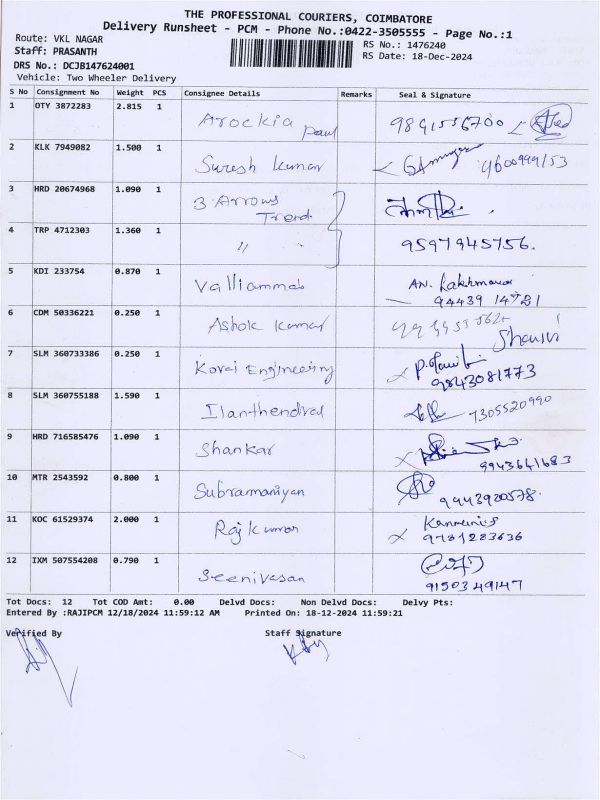 THE PROFESSIONAL COURIERS, COIMBATORE
Delivery Runsheet - PCM - Phone No.:0422-3505555 - Page No.:1
Route: VKL NAGAR
RS No.: 1476240
Staff: PRASANTH
RS Date: 18-Dec-2024
DRS No.: DCJB147624001
Vehicle: Two Wheeler Delivery
S No Consignment No Weight PCS Consignee Details Remarks Seal & Signature
1 OTY 3872283 2.815 1 Arockia Paul
2 KLK 7949082 1.500 1 Suresh Kumar
3 HRD 20674968 1.090 1 3 Arrows Trend
4 TRP 4712303 1.360 1 " 9597945756.
5 KDI 233754 0.870 1 Valliammal 94439 14721
6 CDM 50336221 0.250 1 Ashok Kumar
7 SLM 360733386 0.250 1 Kovai Engineering 9843081773
8 SLM 360755188 1.590 1 Ilanthendral 7305520990
9 HRD 716585476 1.090 1 Shankar 9943641683
10 MTR 2543592 0.800 1 Subramaniyan 9943920578.
11 KOC 61529374 2.000 1 Raj Kumar 9781283636
12 IXM 507554208 0.790 1 Seenivasan 9150349147
Tot Docs: 12 Tot COD Amt: 0.00 Delvd Docs: Non Delvd Docs: Delvy Pts:
Entered By :RAJIPCM 12/18/2024 11:59:12 AM Printed On: 18-12-2024 11:59:21
Verified By Staff Signature